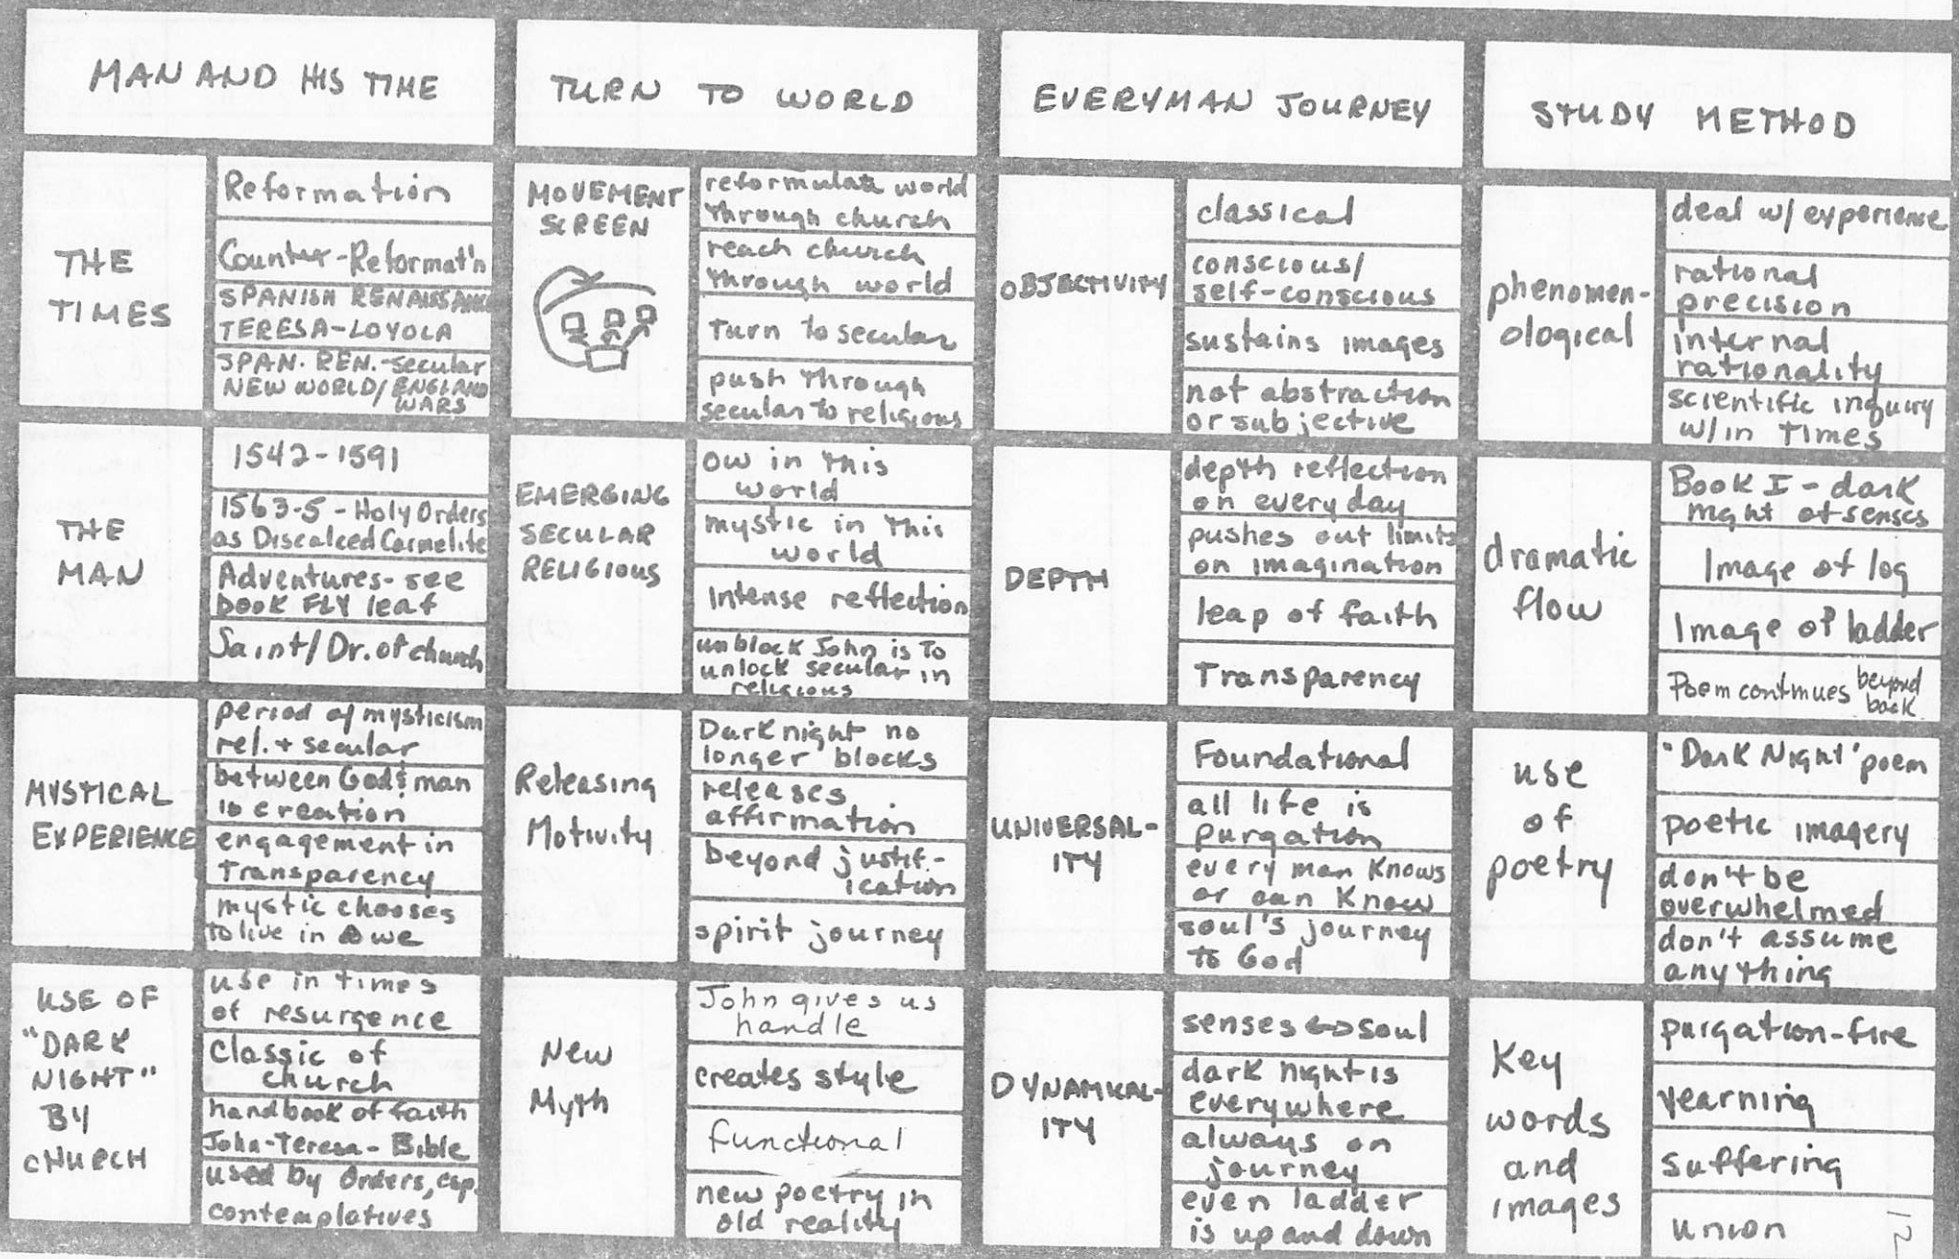 MAN AND HIS TIME
THE
TIMES
Reformation
Counter-Reformat'n
SPANISH RENAISSANCE
TERESA-LOYOLA
SPAN. REN.-secular
NEW WORLD/ENGLAND
WARS
THE
MAN
1542-1591
1563-5-Holy Orders
as Discalced Carmelite
Adventures-see
book FLY leaf
Saint/Dr. of church
MYSTICAL
EXPERIENCE
period of mysticism
rel. + secular
between God & man
is creation
engagement in
Transparency
mystic chooses
to live in awe
USE OF
"DARK
NIGHT"
BY
CHURCH
use in times
of resurgence
Classic of
church
handbook of faith
John-Teresa-Bible
used by Orders, esp.
contemplatives
TURN TO WORLD
MOVEMENT
SCREEN
reformulate world
through church
reach church
through world
Turn to secular
push through
secular to religious
EMERGING
SECULAR
RELIGIOUS
OW in this
world
mystic in this
world
Intense reflection
unblock John is to
unlock secular in
religious
Releasing
Motivity
Dark night no
longer blocks
releases
affirmation
beyond justif-
ication
spirit journey
New
Myth
John gives us
handle
creates style
functional
new poetry in
old reality
EVERYMAN JOURNEY
OBJECTIVITY
classical
conscious/
self-conscious
sustains images
not abstraction
or subjective
DEPTH
depth reflection
on every day
pushes out limits
on imagination
leap of faith
Transparency
UNIVERSAL-
ITY
Foundational
all life is
purgation
every man knows
or can know
soul's journey
to God
DYNAMICAL-
ITY
senses ↔ soul
dark night is
everywhere
always on
journey
even ladder
is up and down
STUDY METHOD
phenomen-
ological
deal w/ experience
rational
precision
internal
rationality
scientific inquiry
w/in Times
dramatic
flow
Book I - dark
night of senses
Image of log
Image of ladder
Poem continues beyond
book
use
of
poetry
"Dark Night" poem
poetic imagery
don't be
overwhelmed
don't assume
anything
Key
words
and
images
purgation-fire
yearning
suffering
union
12